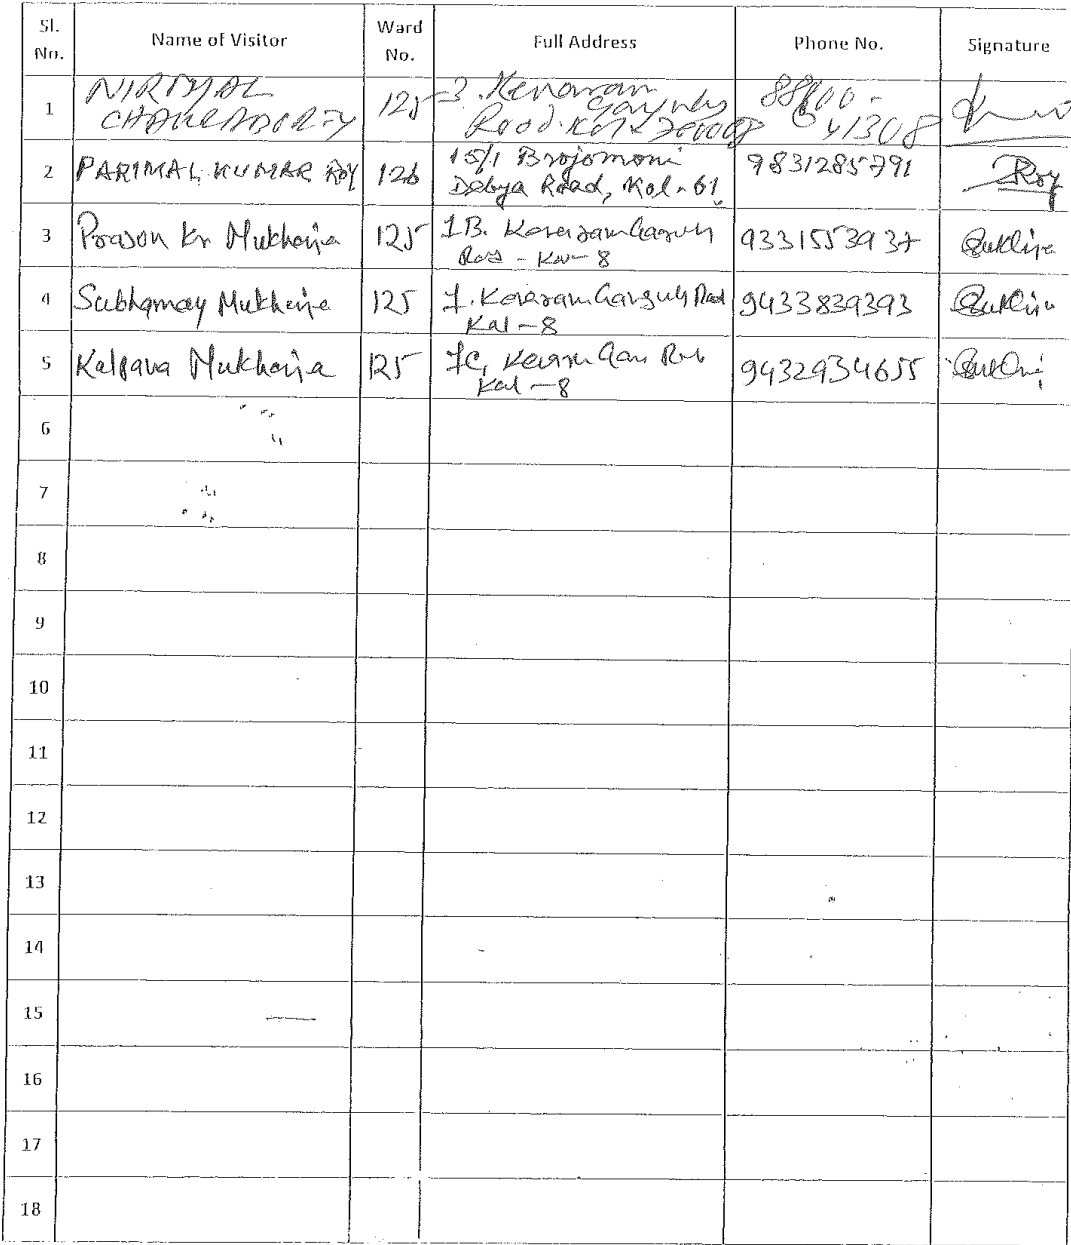 Sl. No. Name of Visitor Ward No. Full Address Phone No. Signature
1 NIRMAL CHAKRABORTY 125 3. Kenaram Ganguly Road. Kol-700008
2 PARIMAL KUMAR ROY 126 15/1 Brojomoni Debya Road, Kol-61 9831285791 Roy
3 Prason Kr Mukherjee 125 1B. 9331553937
4 Subhamay Mukherjee 125 Kol-8 9433839393
5 Kalpana Mukherjee 125 Kol-8 9432934655
6
7
8
9
10
11
12
13
14
15
16
17
18